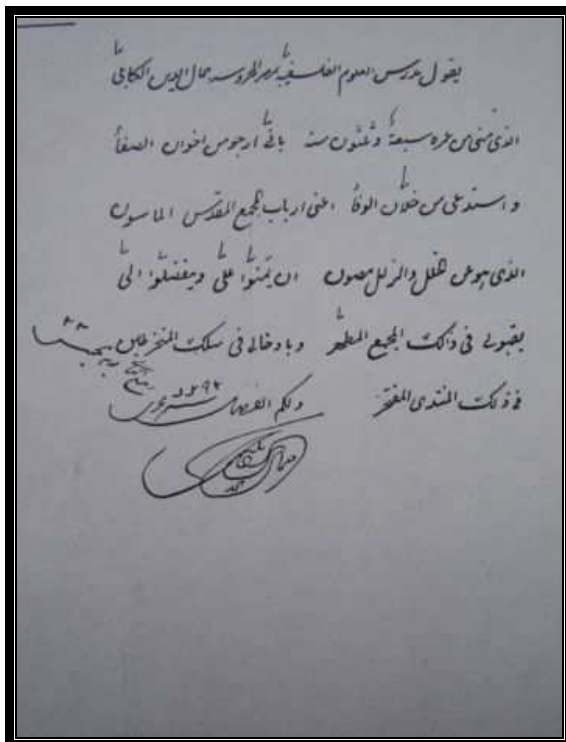 يقول مدرس العلوم الفلسفية بمصر المحروسة جمال الدين الكابلي
الذي مضى من عمره سبعة وثلثون سنة بأني ارجو من اخوان الصفا
و استدعي من خلان الوفا اعني ارباب المجمع المقدس الماسون
الذي هو عن الخلل والزلل مصون ان يمنوا علي و يتفضلوا الي
بقبولي في ذلك المجمع المطهر و بادخالي في سلك المنخرطين
في ذلك المنتدى المفتخر ولكم الفضل